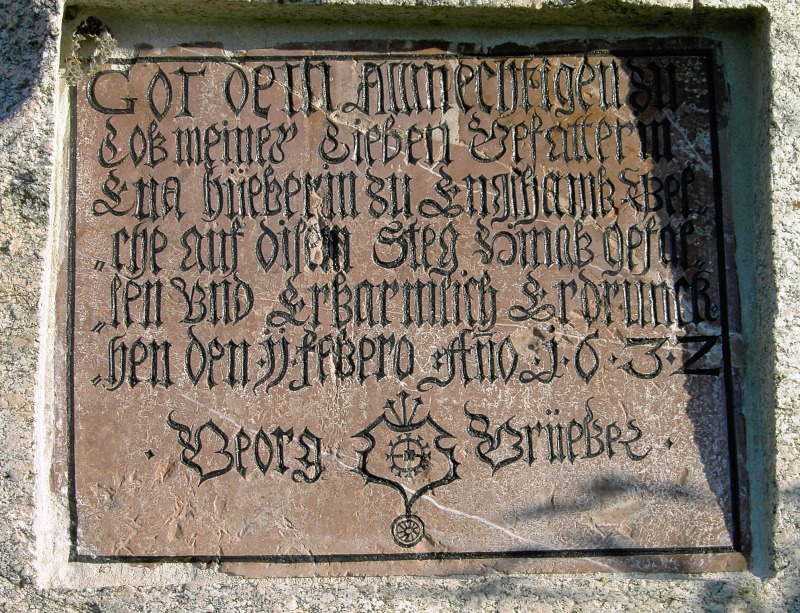 Got dem Allmechtigen zu
Lob meiner Lieben Gefatterin
Eua hüeberin zu Englhamb Wel„
„che auf disem Steg Hinab gefal„
„len Vnd Erbarmlich Erdrunck„
„hen den ·ij· febero Año 1·6·3·2
· Georg Grüeber ·